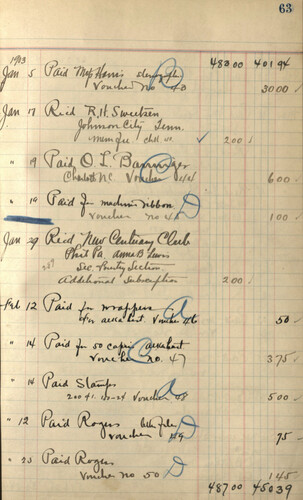 63
1913
Jan 5 Paid Miss Harris 483.00 401 94
Voucher No 43 30 00 ✓
Jan 17 Rec'd R.H. Sweetzen
Johnson City Tenn.
mem fee ✓ 2 00
" 19 Paid O. L. Barringer D
Charlotte N.C. Voucher 44 6 00
" 19 Paid for machine ribbon D
voucher no 45 1 00
Jan 29 Rec'd New Century Club
Phil Pa Anna B Lewis
Sec. Poetry Section
Additional Subscription 2 00
Feb 12 Paid for wrappers a
for Voucher 46 50
" 14 Paid for 50 copies C
Voucher no. 47 3 75
" 14 Paid Stamps a
Voucher 48 5 00
" 12 Paid Rogers D
Voucher 49 75
" 25 Paid Rogers D
Voucher No 50 1 45
487.00 450 39